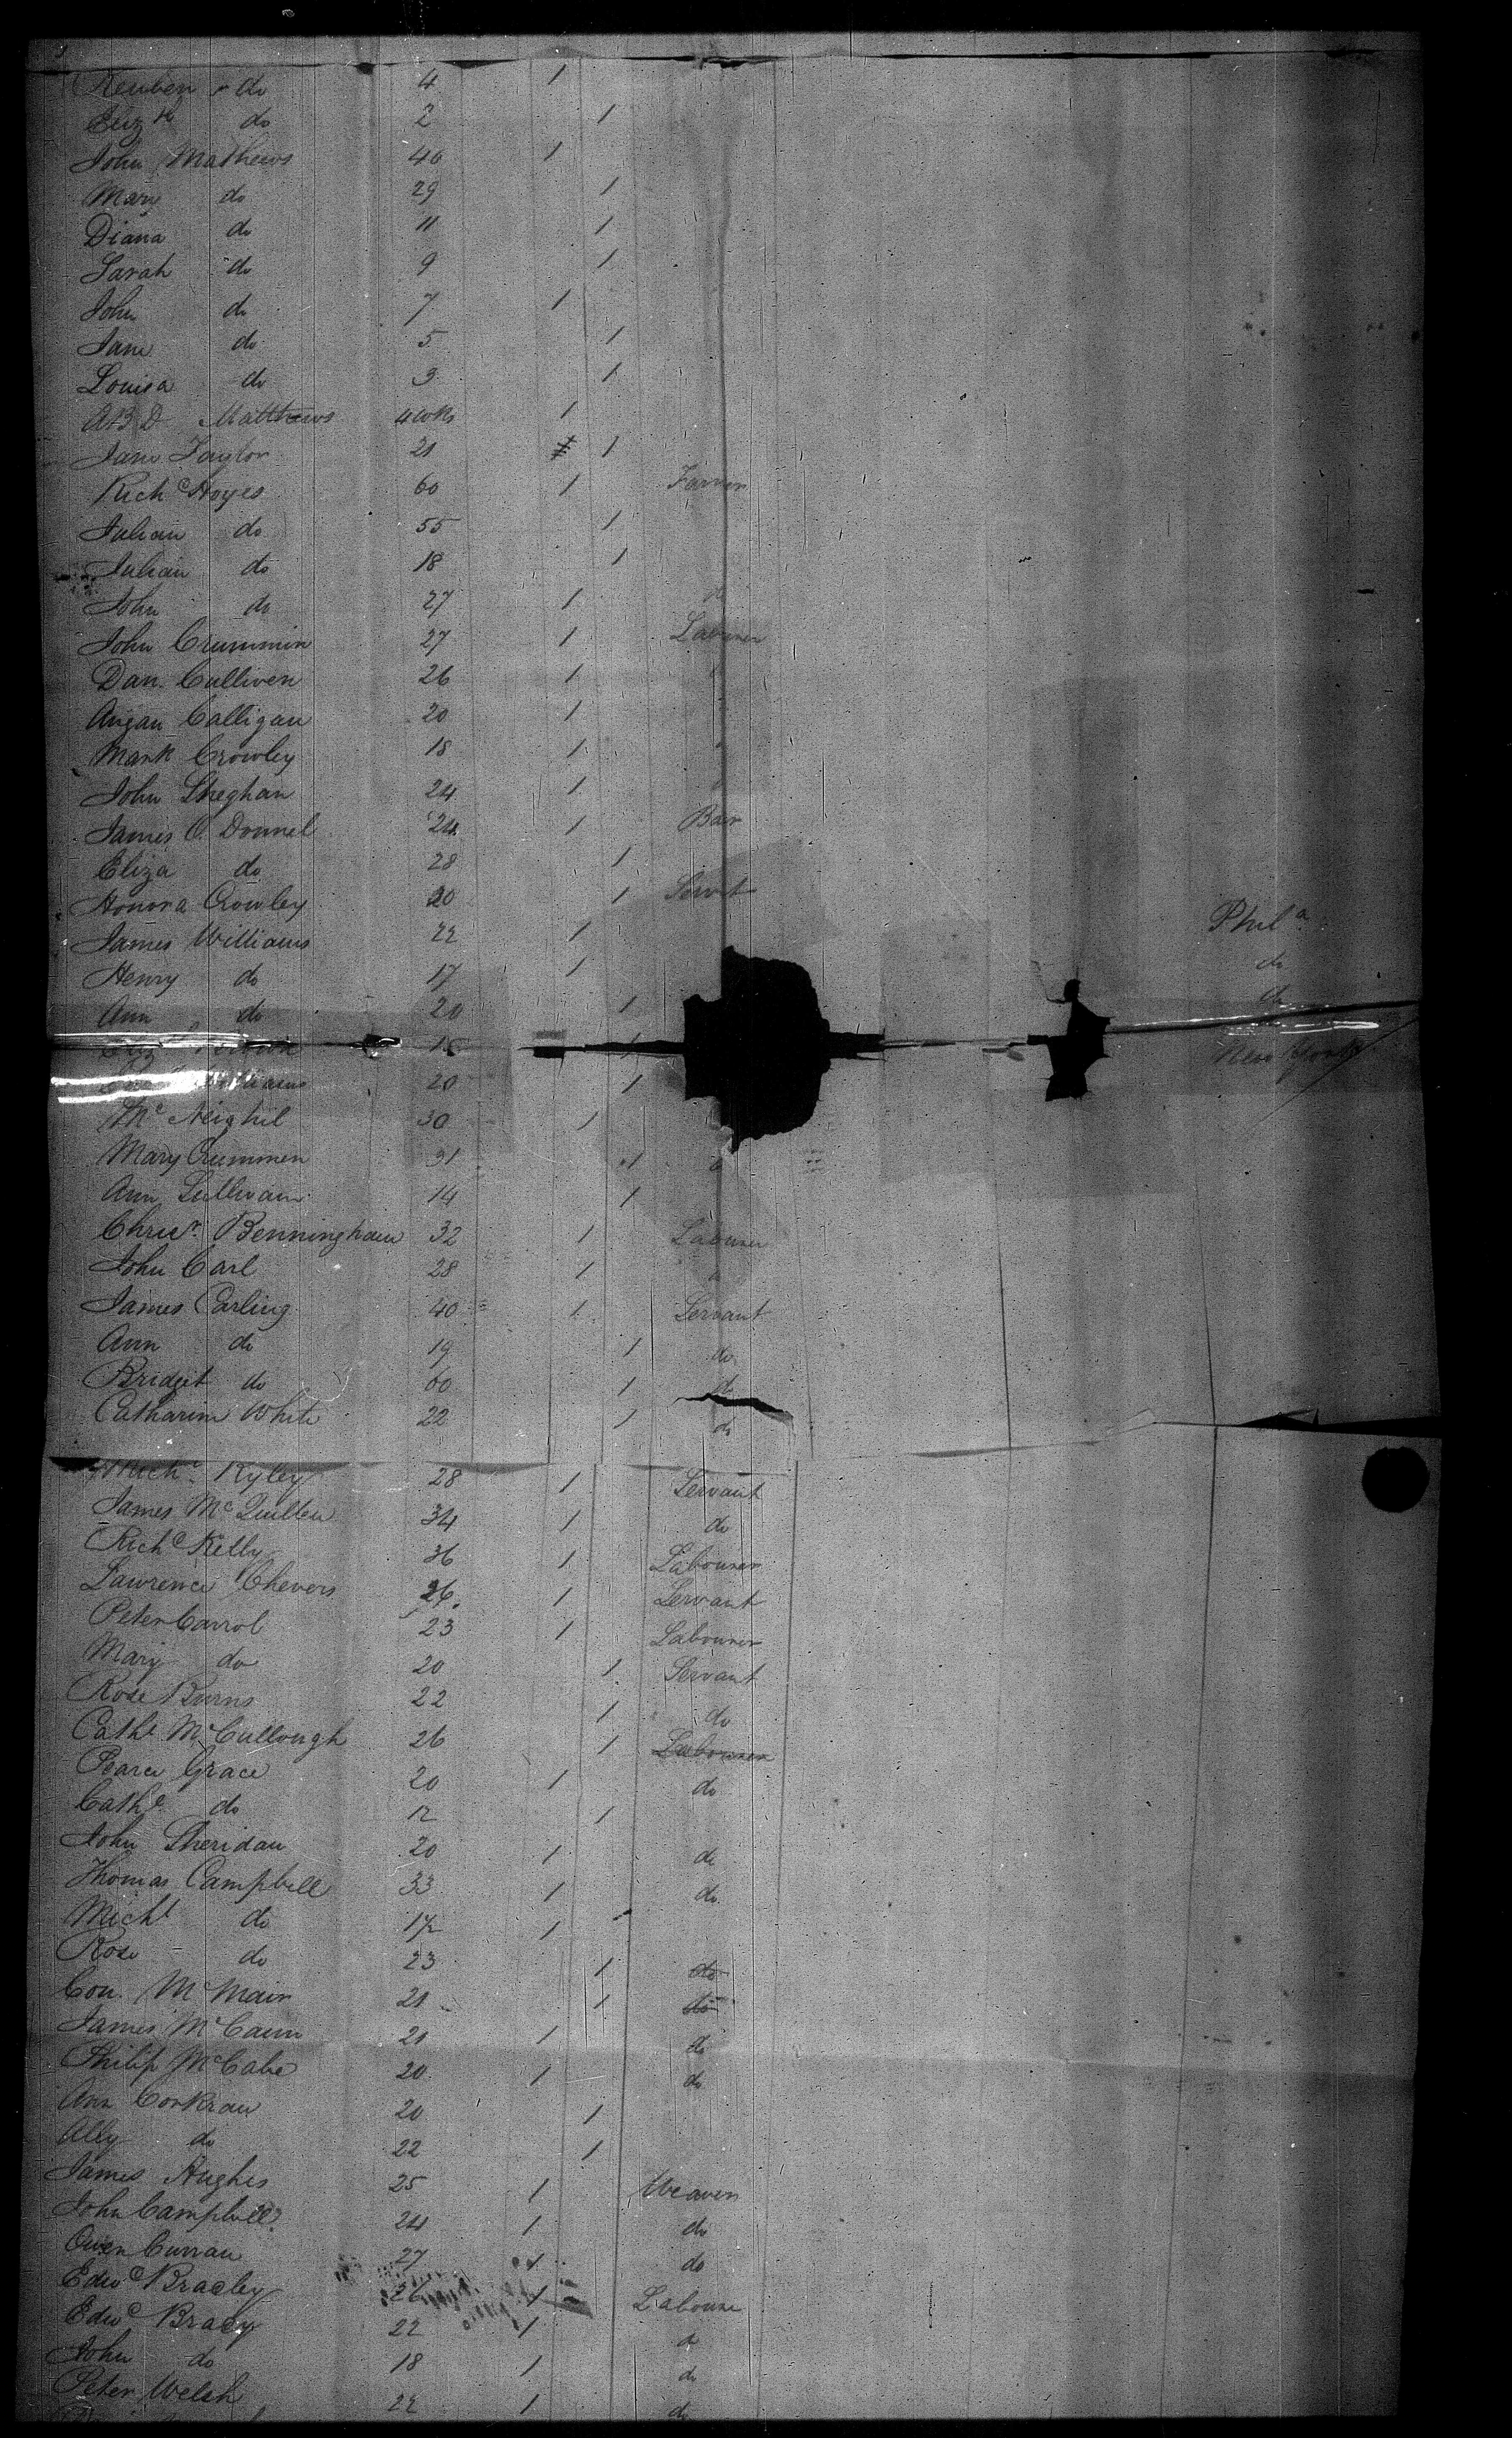 Reuben do 4 1
Eliz th do 2 1
John Mathews 40 1
Mary do 29 1
Diana do 11 1
Sarah do 9 1
John do 7 1
Jane do 5 1
Louisa do 3 1
A B D Matthews 4 wks 1
Jane Taylor 21 1
Rich d Hoyes 60 1 Farmer
Julian do 55 1
Julian do 18 1
John do 27 1 do
John Crummin 27 1 Labourer
Dan. Culliven 26 1
Calligan 20 1
Mark Crowley 18 1
John Sheghan 24 1
James O. Donnel 24 1
Eliza do 28 1
Honora Crowley 20 1 Servt
James Williams 22 1 Phil a
Henry do 17 1 do
Ann do 20 1 do
1 New York
Williams 20 1
Mc Neighil 30 1
Mary Crummen 31 1
Ann Sullivan 14 1
Chrisr. Benningham 32 1 Labourer
John Carl 28 1
James Carling 40 1 Servant
Ann do 19 1 do
Bridget do 60 1 do
Catharine White 22 1 do
Michl. Ryley 28 1 Servant
James Mc Quillen 34 1 do
Rich d Kelly 36 1 Labourer
Lawrence Chevers 26. 1 Servant
Peter Carrol 23 1 Labourer
Mary do 20 1 Servant
Rose Burns 22 1 do
Cathe Mc Cullough 26 1 Labourer
Pearce Grace 20 1 do
Cathe do 12 1
John Sheridan 20 1 do
Thomas Campbell 33 1 do
Michl do 17 1
Rose do 23 1 do
Con. Mc Mair 21 1 do
James Mc Cann 21 1 do
Philip Mc Cabe 20 1 do
Ann Corkran 20 1
Ally do 22 1
James Hughes 25 1 Weaver
John Campbell 24 1 do
Owen Curran 27 1 do
Edwd Bradley 26 1 Laboure
Edwd Brady 22 1 do
John do 18 1 do
Peter Welsh 22 1 do